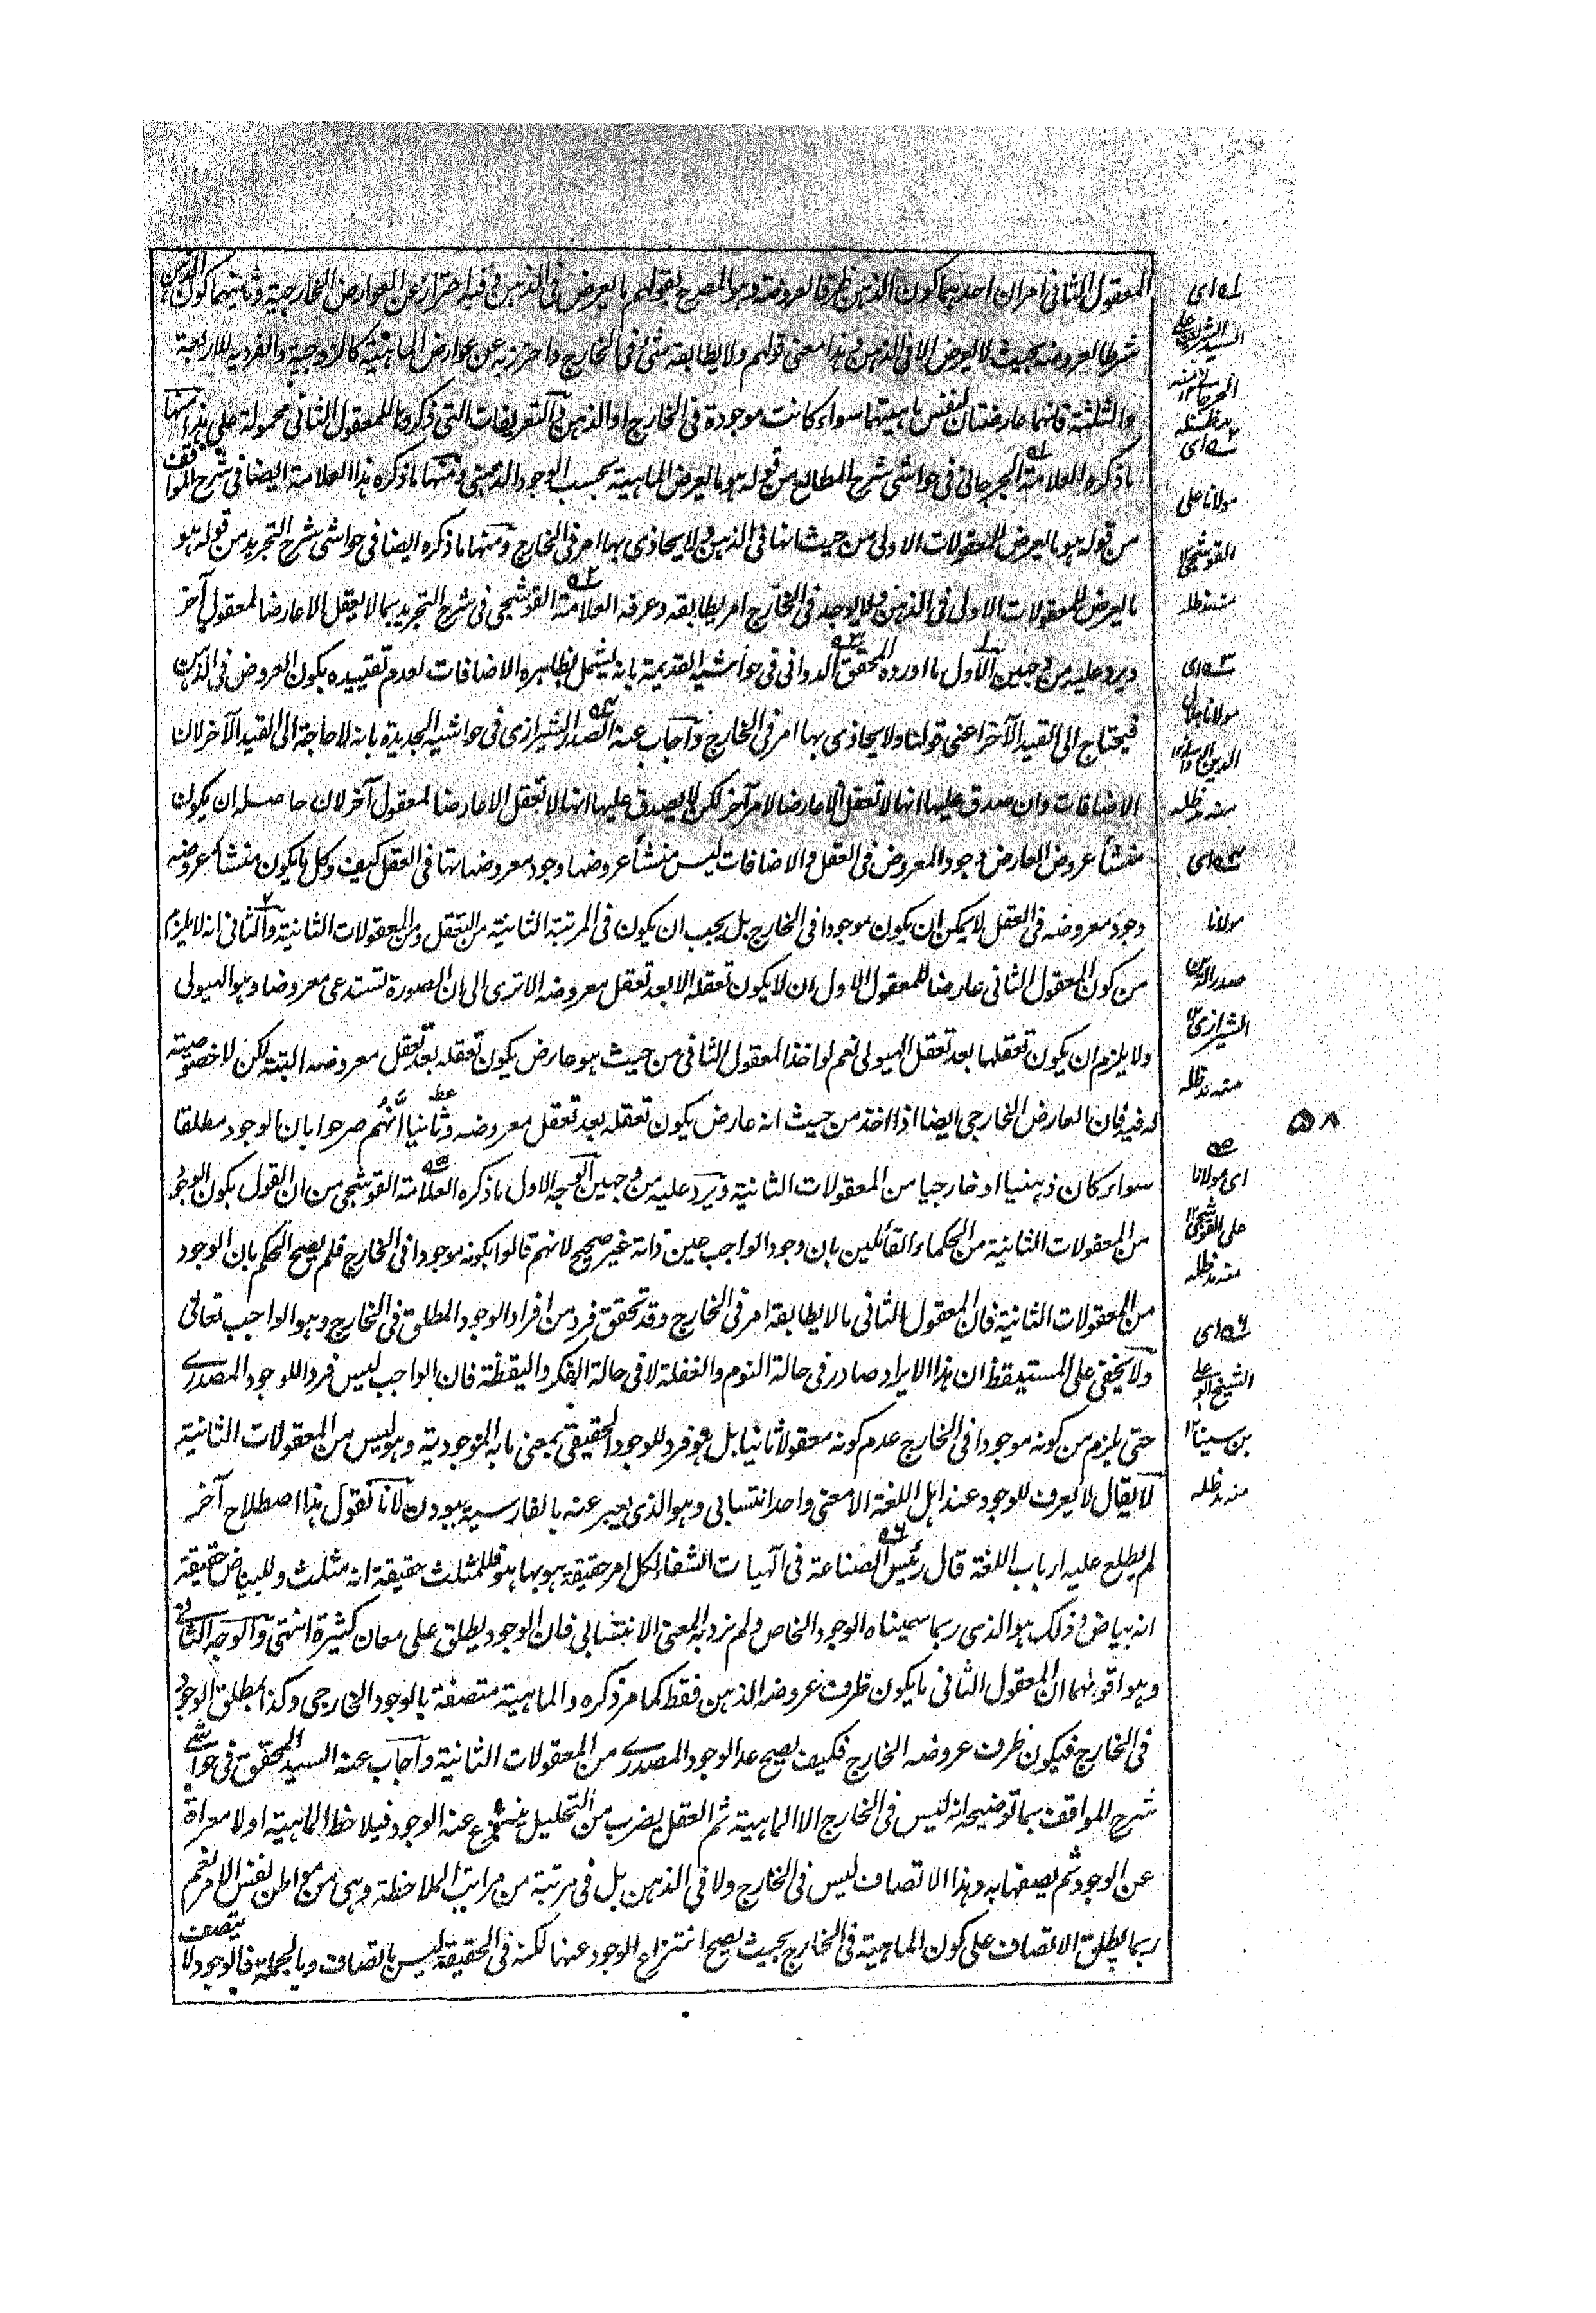 المعقول الثانى امران احدهما كون الذهن ظرفا لعروضه وهو المصرح بقولهم ما يعرض فى الذهن وفيه احتراز عن العوارض الخارجية وثانيهما كون الذهن
شرطا لعروضه بحيث لا يعرض الا فى الذهن وهذا معنى قولهم ولا يطابقه شئ فى الخارج واحترز به عن عوارض الماهية كالزوجية والفردية للاربعة
والثلثة فانهما عارضتان لنفس ماهيتهما سواء كانت موجودة فى الخارج او الذهن والتعريفات التى ذكروها للمعقول الثانى محمولة على هذا منها
ما ذكره العلامة الجرجانى فى حواشى شرح المطالع من قوله هو ما يعرض الماهية بحسب الوجود الذهنى ومنها ما ذكره هذا العلامة ايضا فى شرح المواقف
من قوله هو ما يعرض للمعقولات الاولى من حيث انها فى الذهن ولا يحاذى بها امر فى الخارج ومنها ما ذكره ايضا فى حواشى شرح التجريد من قوله هو
ما يعرض للمعقولات الاولى فى الذهن ولا يوجد فى الخارج امر يطابقه وعرفه العلامة القوشجى فى شرح التجريد بما لا يعقل الا عارضا لمعقول آخر
ويرد عليه من وجهين الاول ما اورده المحقق الدوانى فى حواشيه القديمة بانه يشمل بظاهره الاضافات لعدم تقييده بكون العروض فى الذهن
فيحتاج الى القيد الآخر اعنى قولنا ولا يحاذى بها امر فى الخارج وآجاب عنه الصدر الشيرازى فى حواشيه الجديدة بانه لا حاجة الى القيد الآخر لان
الاضافات وان صدق عليها انها لا تعقل الا عارضا لامر آخر لكن لا يصدق عليها انها لا تعقل الا عارضا لمعقول آخر لان حاصله ان يكون
منشأ عروض العارض وجود المعروض فى العقل والاضافات ليس منشأ عروضها وجود معروضاتها فى العقل كيف وكل ما يكون منشأ عروضه
وجود معروضه فى العقل لا يمكن ان يكون موجودا فى الخارج بل يجب ان يكون فى المرتبة الثانية من التعقل ومن المعقولات الثانية والثانى انه لا يلزم
من كون المعقول الثانى عارضا للمعقول الاول ان لا يكون تعقله الا بعد تعقل معروضه الا ترى الى ان الصورة تستدعى معروضا وهو الهيولى
ولا يلزم ان يكون تعقلها بعد تعقل الهيولى نعم لو اخذ المعقول الثانى من حيث هو عارض يكون تعقله بعد تعقل معروضه البتة لكن لا خصوصية
له فيه فان العارض الخارجى ايضا اذا اخذ من حيث انه عارض يكون تعقله بعد تعقل معروضه وثانيا انهم صرحوا بان الوجود مطلقا
سواء كان ذهنيا او خارجيا من المعقولات الثانية ويرد عليه من وجهين الوجه الاول ما ذكره العلامة القوشجى من ان القول بكون الوجود
من المعقولات الثانية من الحكماء القائلين بان وجود الواجب عين ذاته غير صحيح لانهم قالوا بكونه موجودا فى الخارج فلم يصح الحكم بان الوجود
من المعقولات الثانية فان المعقول الثانى ما لا يطابقه امر فى الخارج وقد تحقق فرد من افراد الوجود المطلق فى الخارج وهو الواجب تعالى
ولا يخفى على المستيقظ ان هذا الايراد صادر فى حالة النوم والغفلة لا فى حالة الفكر واليقظة فان الواجب ليس فردا للوجود المصدرى
حتى يلزم من كونه موجودا فى الخارج عدم كونه معقولا ثانيا بل هو فرد للوجود الحقيقى بمعنى ما به الموجودية وهو ليس من المعقولات الثانية
لا يقال لا يعرف للوجود عند اهل اللغة الا معنى واحد انتسابى وهو الذى يعبر عنه بالفارسية ببودن لانا نقول هذا اصطلاح آخر
لم يطلع عليه ارباب اللغة قال رئيس الصناعة فى آلهيات الشفا لكل امر حقيقة هو بها هو فللمثلث حقيقة انه مثلث وللبياض حقيقة
انه بياض وذلك هو الذى ربما سميناه الوجود الخاص ولم نرد به المعنى الانتسابى فان الوجود يطلق على معان كثيرة انتهى والوجه الثانى
وهو اقوىهما ان المعقول الثانى ما يكون ظرف عروضه الذهن فقط كما مر ذكره والماهية متصفة بالوجود الخارجى وكذا بمطلق الوجود
فى الخارج فيكون ظرف عروضه الخارج فكيف يصح عد الوجود المصدرى من المعقولات الثانية وآجاب عنه السيد المحقق فى حواشى
شرح المواقف بما توضيحه انه ليس فى الخارج الا الماهية ثم العقل يضرب من التحليل ينتزع عنه الوجود فيلاحظ الماهية اولا معراة
عن الوجود ثم يصفها به وهذا الاتصاف ليس فى الخارج ولا فى الذهن بل فى مرتبة من مراتب الملاحظة وهى من مواطن نفس الامر نعم
ربما يطلق الاتصاف على كون الماهية فى الخارج بحيث يصح انتزاع الوجود عنها لكنه فى الحقيقة ليس باتصاف وبالجملة فالوجود لا يتصف
له اى
السيد الشريف على
الجرجانى منه
مد ظله
ــه اى
مولانا على
القوشجى
منه مد ظله
ــه اى
مولانا جلال
الدين الدوانى
منه مد ظله
ــه اى
مولانا
صدر الدين
الشيرازى
منه مد ظله
٥٨
ه
اى مولانا
على القوشجى
منه مد ظله
ــه اى
الشيخ ابو على
بن سينا
منه مد ظله